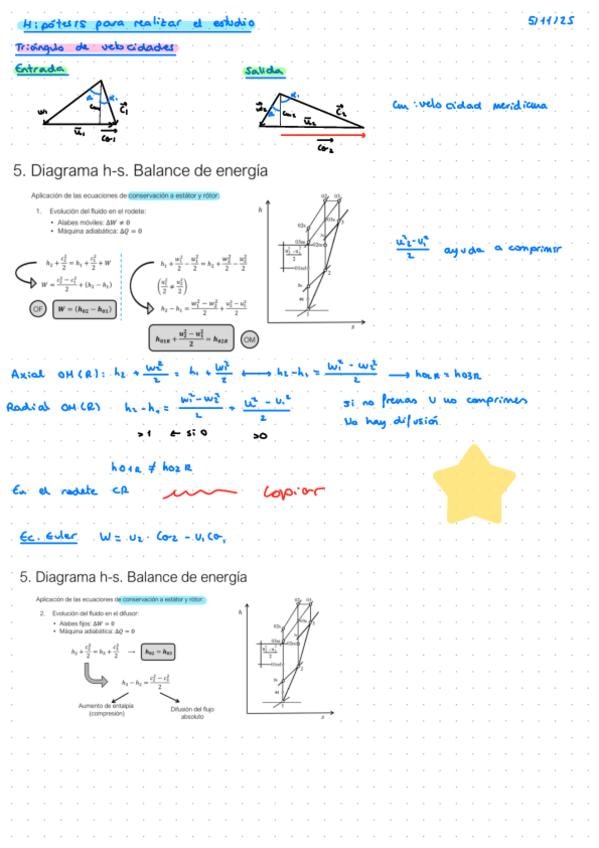 Hipótesis para realizar el estudio
5/11/25
Triángulo de velocidades
Entrada
Salida
w₁ cm₁ c₁ u₁ cθ₁
w₂ cm₂ u₂ c₂ cθ₂
cm : velocidad meridiana
5. Diagrama h-s. Balance de energía
Aplicación de las ecuaciones de conservación a estátor y rótor:
1. Evolución del fluido en el rodete:
• Alabes móviles: ΔW ≠ 0
• Máquina adiabática: ΔQ = 0
h₂ + c₂²/2 = h₁ + c₁²/2 + W
W = (c₂² − c₁²)/2 + (h₂ − h₁)
OF W = (h₀₂ − h₀₁)
h₁ + w₁²/2 − u₁²/2 = h₂ + w₂²/2 − u₂²/2
(u₁²/2 ≠ u₂²/2)
h₂ − h₁ = (w₁² − w₂²)/2 + (u₂² − u₁²)/2
h₀₁R + (u₂² − u₁²)/2 = h₀₂R OM
h
s
(u₂² − u₁²)/2 ayuda a comprimir
Axial OM (R) : h₂ + w₂²/2 = h₁ + w₁²/2 ⟷ h₂ − h₁ = (w₁² − w₂²)/2 → h₀₂R = h₀₃R
Radial OM (R) h₂ − h₁ = (w₁² − w₂²)/2 + (u₂² − u₁²)/2
si no frenas U no comprimes
No hay difusión
>1 ← si 0 >0
h₀₁R ≠ h₀₂R
En el rodete CR
Copiar
Ec. Euler W = u₂ · cθ₂ − u₁ cθ₁
5. Diagrama h-s. Balance de energía
Aplicación de las ecuaciones de conservación a estátor y rótor:
2. Evolución del fluido en el difusor:
• Alabes fijos: ΔW = 0
• Máquina adiabática: ΔQ = 0
h₂ + c₂²/2 = h₃ + c₃²/2 → h₀₂ = h₀₃
h₃ − h₂ = (c₂² − c₃²)/2
Aumento de entalpía
(compresión)
Difusión del flujo
absoluto
h
s